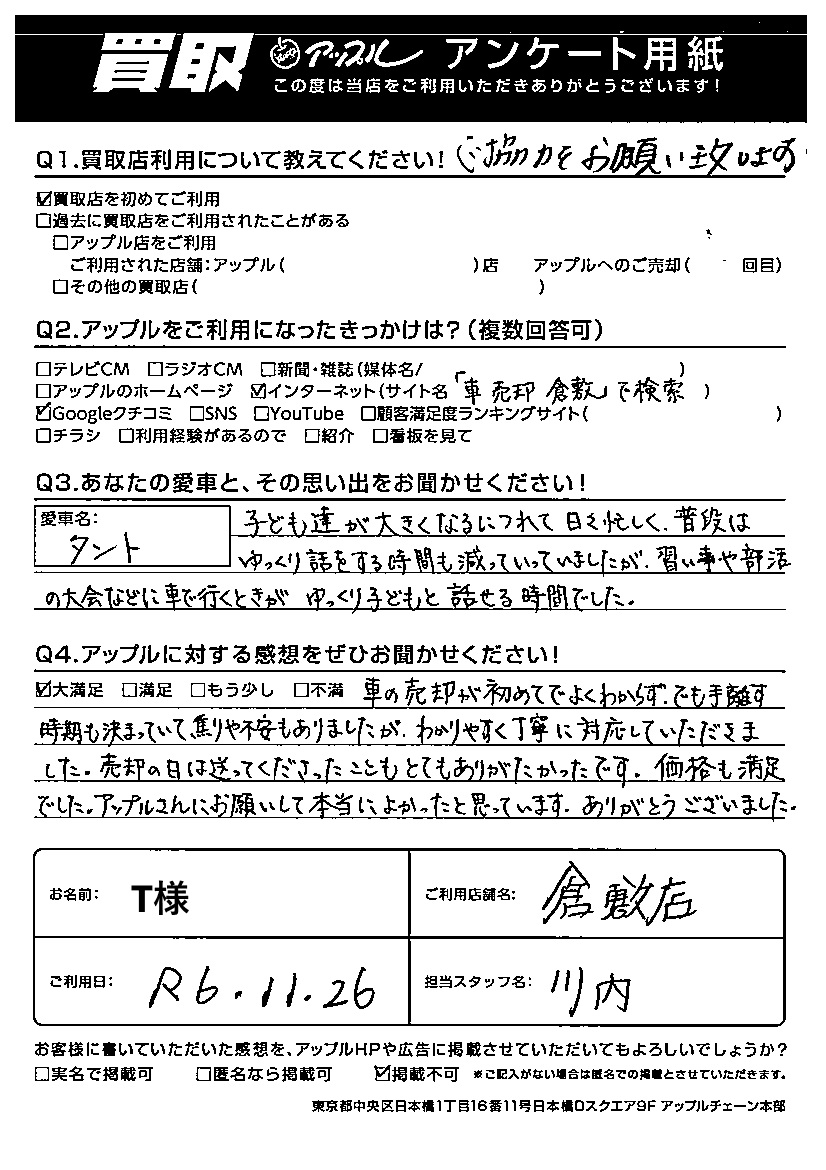 買取 アップル アンケート用紙
この度は当店をご利用いただきありがとうございます!
Q1.買取店利用について教えてください! ご協力をお願い致します
☑買取店を初めてご利用
□過去に買取店をご利用されたことがある
□アップル店をご利用
ご利用された店舗:アップル( )店 アップルへのご売却( 回目)
□その他の買取店( )
Q2.アップルをご利用になったきっかけは?(複数回答可)
□テレビCM □ラジオCM □新聞・雑誌(媒体名/ )
□アップルのホームページ ☑インターネット(サイト名「車 売却 倉敷」で検索 )
☑Googleクチコミ □SNS □YouTube □顧客満足度ランキングサイト( )
□チラシ □利用経験があるので □紹介 □看板を見て
Q3.あなたの愛車と、その思い出をお聞かせください!
愛車名: タント 子ども達が大きくなるにつれて日々忙しく、普段は
ゆっくり話をする時間も減っていっていましたが、習い事や部活
の大会などに車で行くときが ゆっくり子どもと話せる時間でした。
Q4.アップルに対する感想をぜひお聞かせください!
☑大満足 □満足 □もう少し □不満 車の売却が初めてでよくわからず、でも手離す
時期も決まっていて焦りや不安もありましたが、わかりやすく丁寧に対応していただきま
した。売却の日は送ってくださったこともとてもありがたかったです。価格も満足
でした。アップルさんにお願いして本当によかったと思っています。ありがとうございました。
お名前: T様 ご利用店舗名: 倉敷店
ご利用日: R6.11.26 担当スタッフ名: 川内
お客様に書いていただいた感想を、アップルHPや広告に掲載させていただいてもよろしいでしょうか?
□実名で掲載可 □匿名なら掲載可 ☑掲載不可 ※ご記入がない場合は匿名での掲載とさせていただきます。
東京都中央区日本橋1丁目16番11号日本橋Dスクエア9F アップルチェーン本部